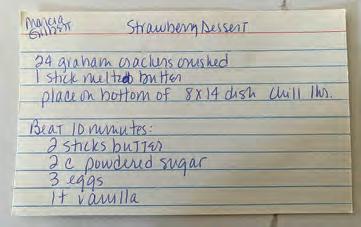 Marcia
Gilbert
Strawberry Dessert
24 graham crackers crushed
1 stick melted butter
place on bottom of 8x14 dish chill 1hr.
Beat 10 minutes:
2 sticks butter
2 c powdered sugar
3 eggs
1t vanilla